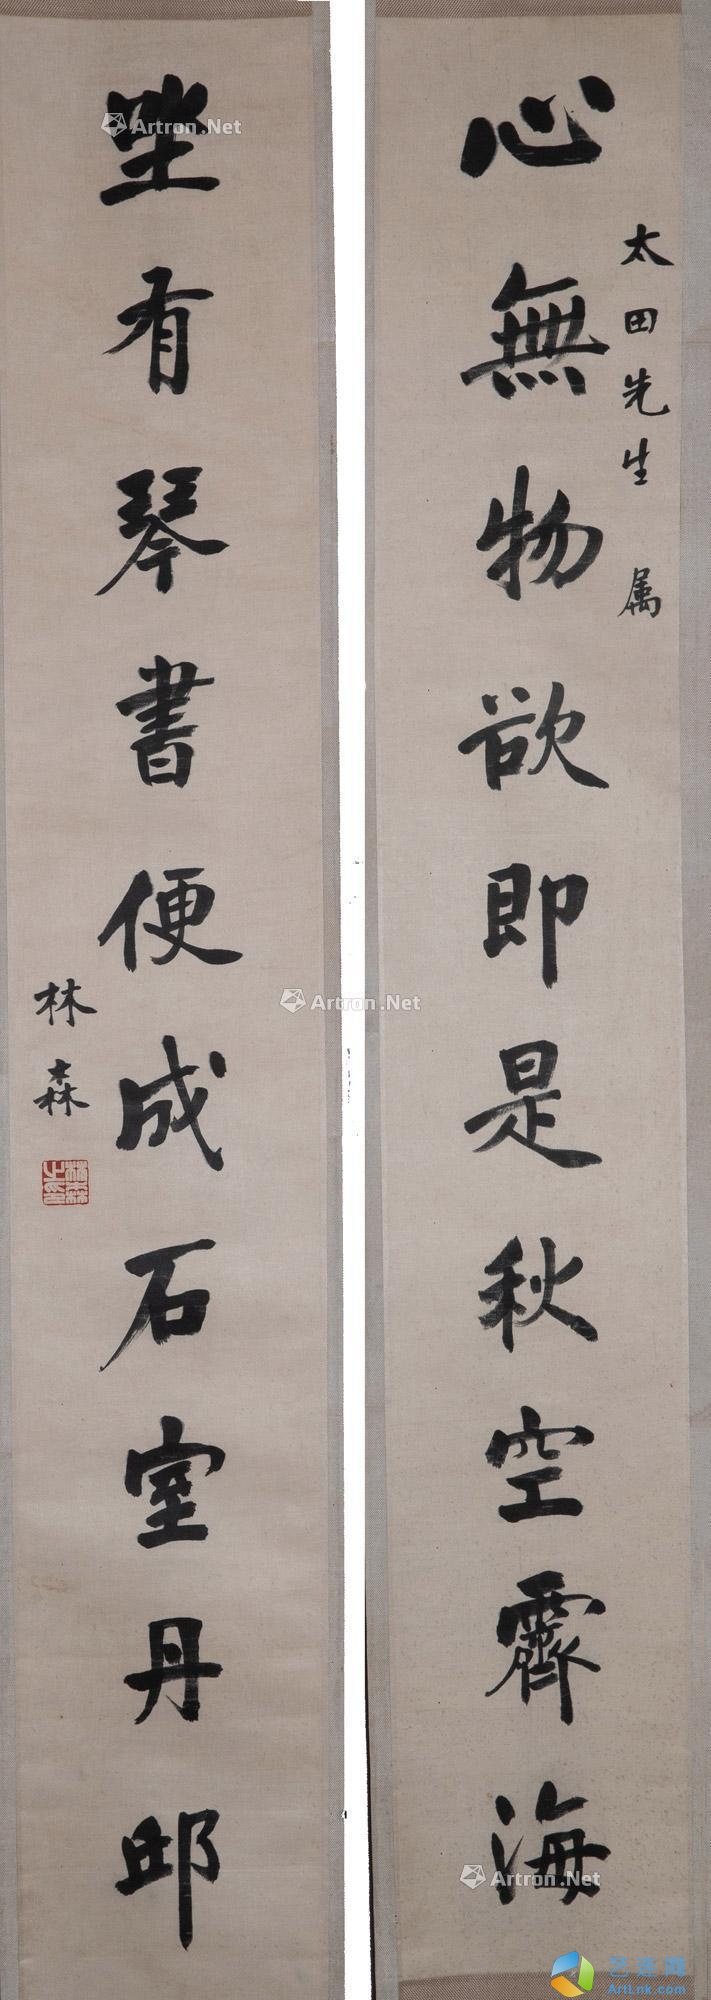 太田先生 属
心無物欲即是秋空霽海
坐有琴書便成石室丹邱
林森
林森之印
Artron.Net
Artron.Net
Artron.Net
艺连网
ArtLnk.com